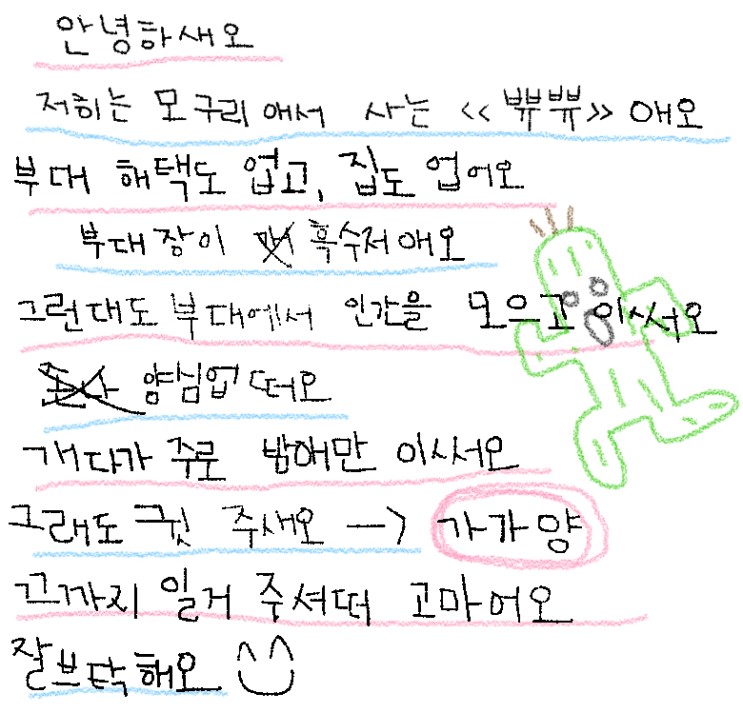 안녕하새오
저희는 모구리 애서 사는 << 쀼쀼 >> 애오
부대 해택도 업고, 집도 업어오
부대장이 흑수저 애오
그런대도 부대에서 인간을 모으고 이써오
양심업떠오
개다가 주로 밤애만 이사서오
그래도 주새오 → 가가양
끄까지 일거 주셔떠 고마어오
잘브탁해오